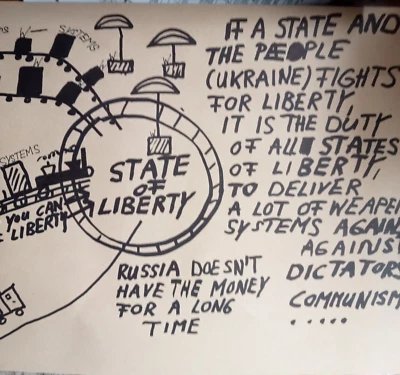 W— SYSTEMS
SYSTEMS
STATE
OF
LIBERTY
YOU CAN
LIBERTY
RUSSIA DOESN'T
HAVE THE MONEY
FOR A LONG
TIME
IF A STATE AND
THE PEOPLE
(UKRAINE) FIGHTS
FOR LIBERTY,
IT IS THE DUTY
OF ALL STATES
OF LIBERTY,
TO DELIVER
A LOT OF WEAPEN
SYSTEMS AGAIN
AGAINST
DICTATORS
COMMUNISM
.....